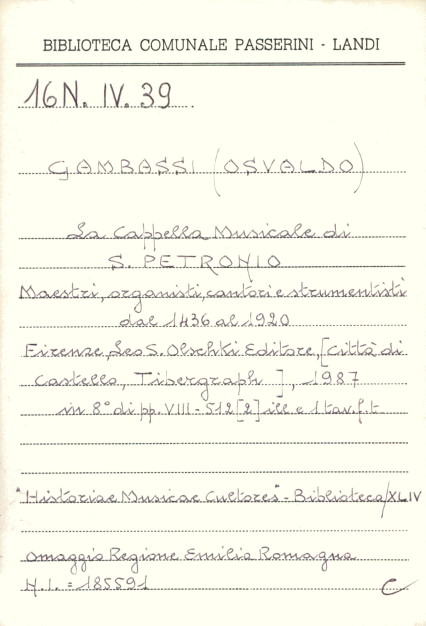 BIBLIOTECA COMUNALE PASSERINI - LANDI
16N. IV. 39
GAMBASSI (OSVALDO)
La Cappella Musicale di
S. PETRONIO
Maestri, organisti, cantori e strumentisti
dal 1436 al 1920
Firenze, Leo S. Olschki Editore, [Città di
Castello, Tibergraph ], 1987
in 8° di pp. VIII - 512 [2] ill e 1 tav. f. t.
"Historiae Musicae Cultores" - Biblioteca/XLIV
Omaggio Regione Emilia Romagna
N.I. = 185591
C